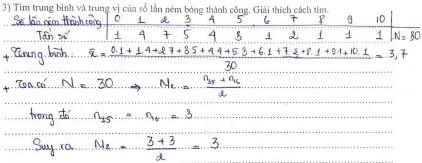 3) Tìm trung bình và trung vị của số lần ném bóng thành công. Giải thích cách tìm.
Số lần ném thành công 0 1 2 3 4 5 6 7 8 9 10
Tần số 1 4 7 5 4 3 1 2 1 1 1 N=30
+ Trung bình x̄ = 0.1+1.4+2.7+3.5+4.4+5.3+6.1+7.2+8.1+9.1+10.1 / 30 = 3,7
+ Ta có N = 30 → Me = n15 + n16 / 2
trong đó n15 = n16 = 3
Suy ra Me = 3+3 / 2 = 3